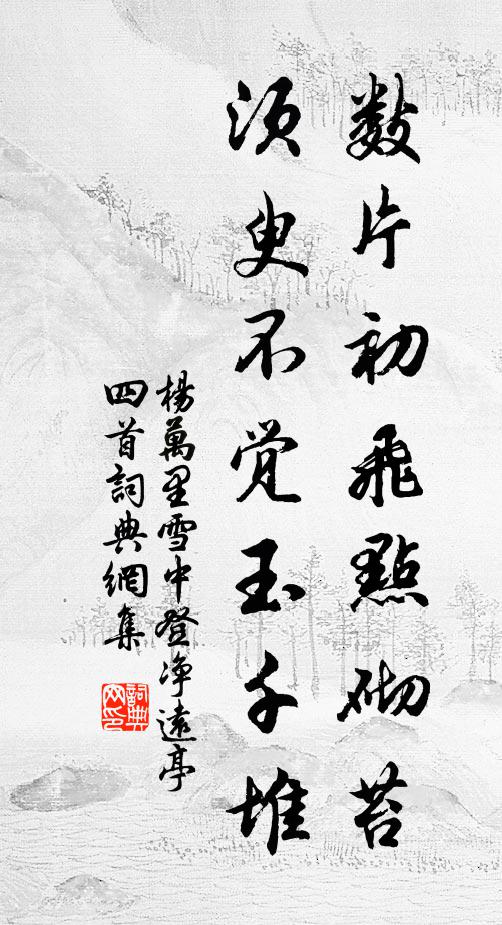 數片初飛點砌苔
須臾不覺玉千堆
楊萬里雪中登净遠亭
四首詞典網集
詞典
网印